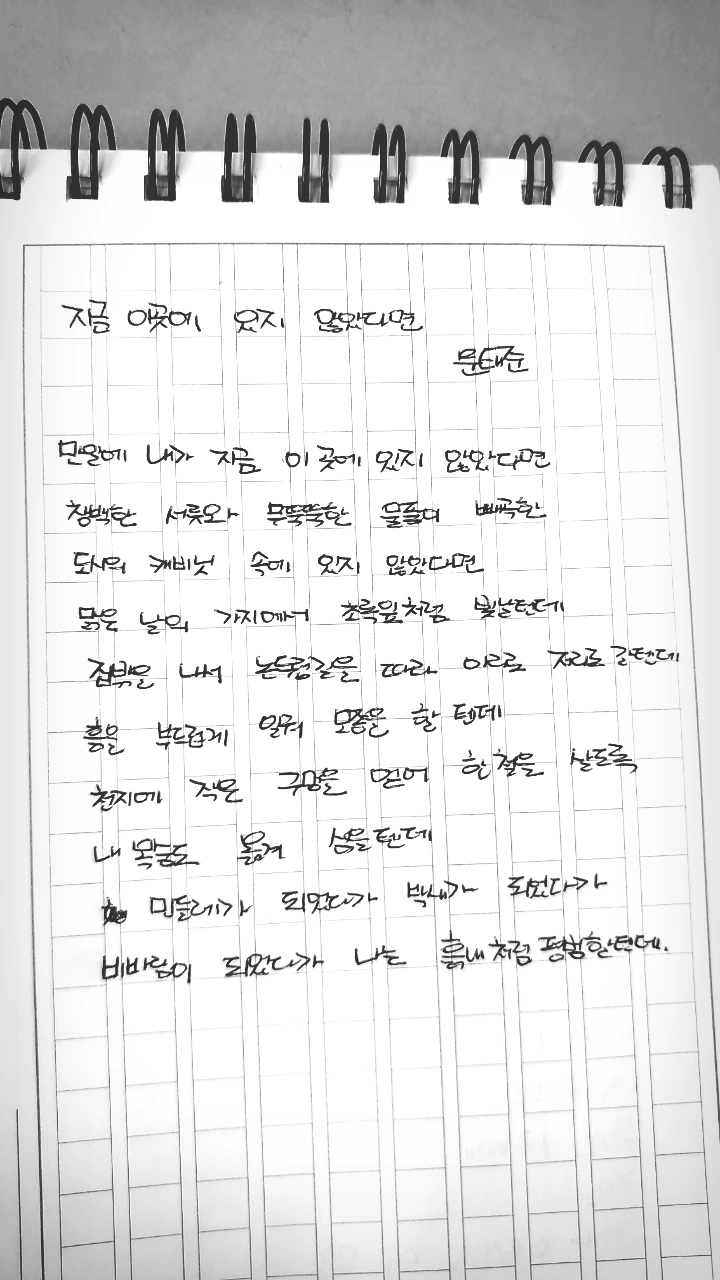 지금 이곳에 있지 않았다면
문태준
만일에 내가 지금 이 곳에 있지 않았다면
창백한 서류와 무뚝뚝한 물품이 빼곡한
도시의 캐비닛 속에 있지 않았다면
맑은 날의 가지에서 초록잎처럼 빛날텐데
집밖을 나서 논두렁길을 따라 이리로 저리로 갈텐데
흙을 부드럽게 일궈 모종을 할 텐데
천지에 작은 구멍을 얻어 한철을 살도록
내 목숨도 옮겨 심을텐데
민들레가 되었다가 박새가 되었다가
비바람이 되었다가 나는 흙내처럼 평범할텐데.